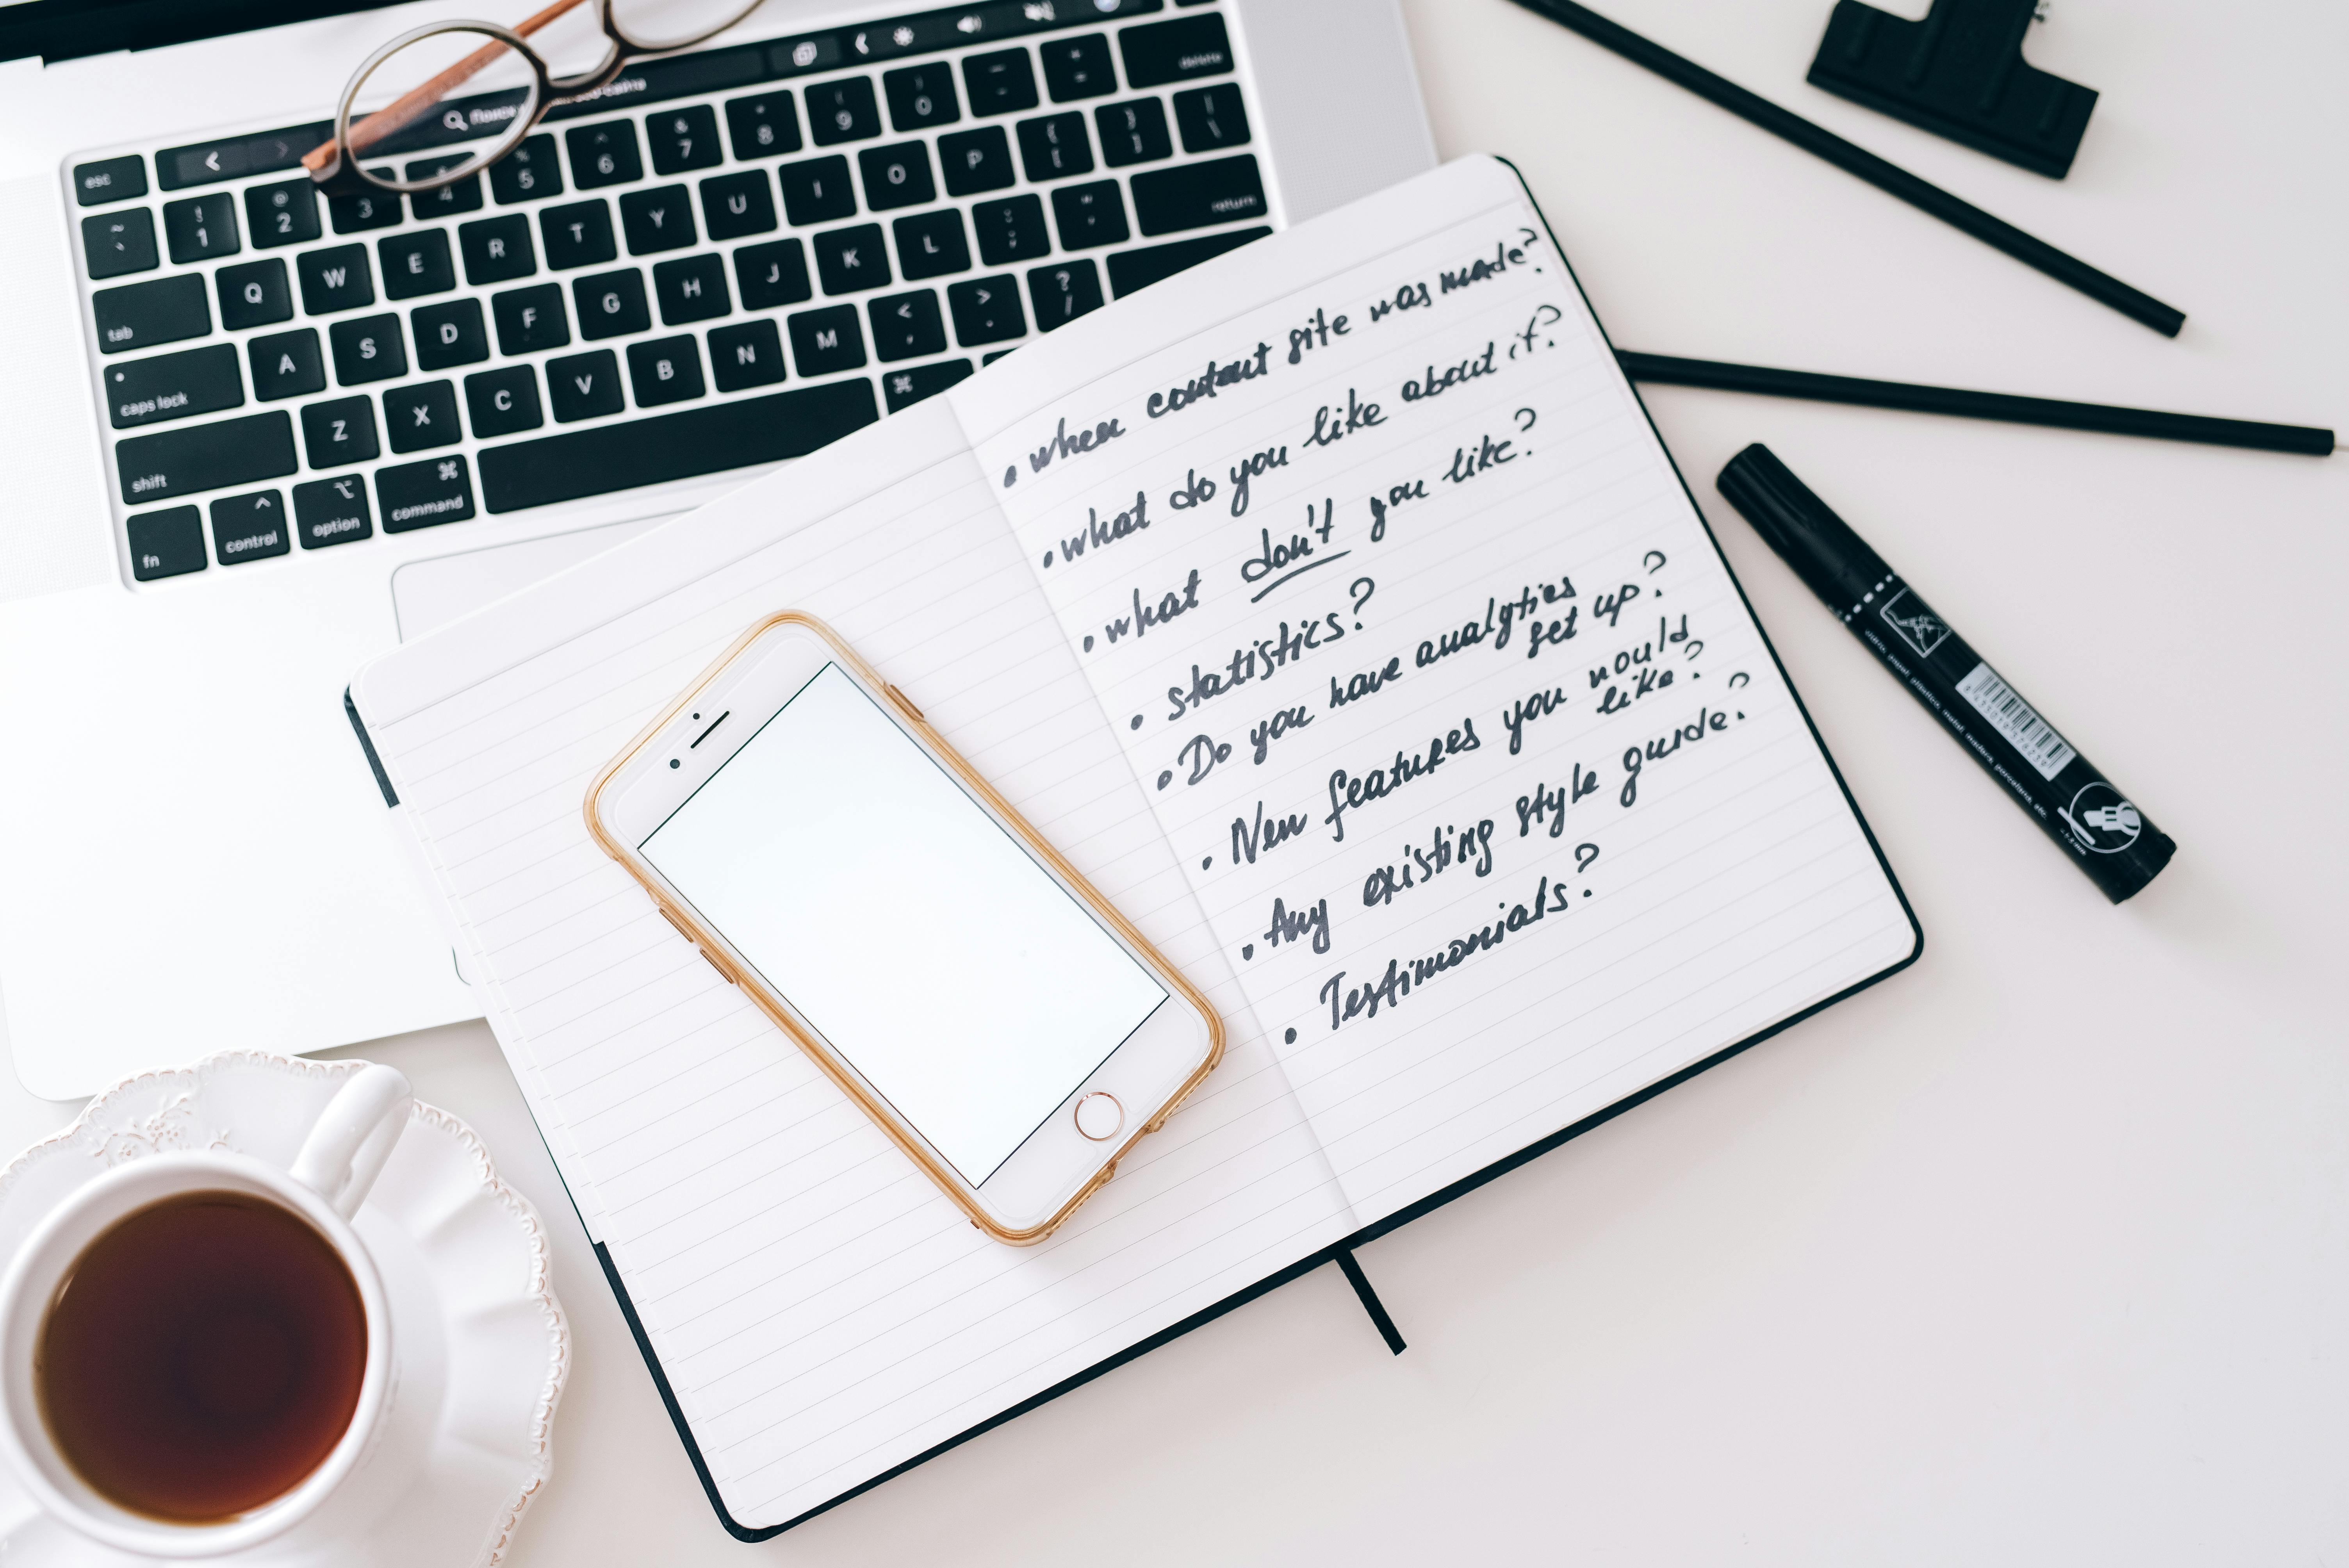 Поиск
esc
delete
~ `
! 1
@ 2
3
4
% 5
^ 6
& 7
* 8
( 9
) 0
_ -
+ =
tab
Q W E R T Y U I O P { [ } ] | \
caps lock
A S D F G H J K L : ; " '
return
shift
Z X C V B N M < , > . ? /
fn
control
option
⌘
command
⌘
• when content site was made?
• what do you like about it?
• what don't you like?
• statistics?
• Do you have analytics
set up?
• New features you would
like?
• Any existing style guide?
• Testimonials?